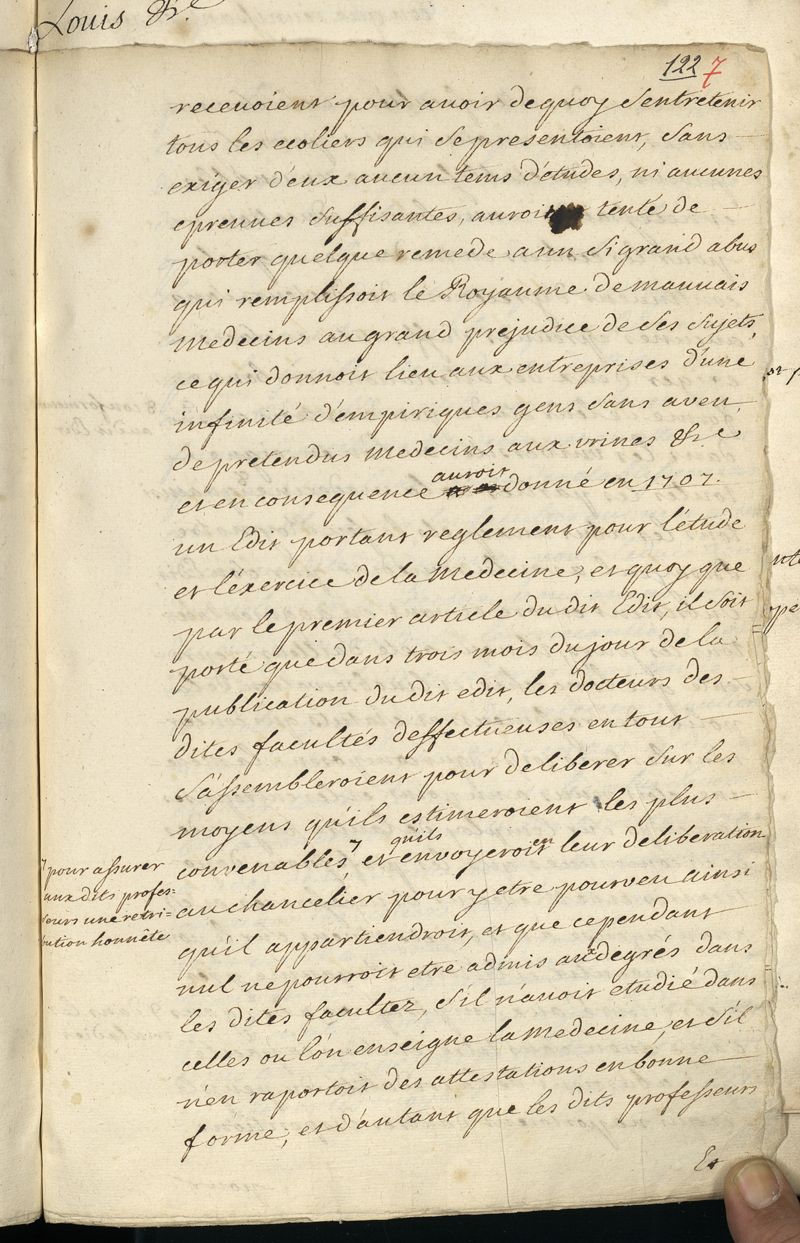 Louis &c
122 7
recevoient pour avoir dequoy s'entretenir
tous les ecoliers qui se presentoient, sans
exiger d'eux aucun tems d'études, ni aucunes
epreuves suffisantes, auroit tenté de
porter quelque remede a un si grand abus
qui remplissoit le Royaume de mauvais
medecins au grand prejudice de ses sujets,
ce qui donnoit lieu aux entreprises d'une
infinité d'empiriques gens sans aveu,
de pretendus medecins aux urines &c
auroit
et en consequence donné en 1707.
un Edit portant reglement pour l'étude
et l'éxercice de la medecine, et quoy que
par le premier article du dit Edit, il soit
porté que dans trois mois du jour de la
publication du dit edit, les docteurs des
dites facultés deffectueuses en tout
s'assembleroient pour deliberer sur les
moyens qu'ils estimeroient les plus
qu'ils
convenables 7 et envoyeroient leur deliberation
7 pour assurer
aux dits profes:
seurs une retri-
bution honnête
au chancelier pour y etre pourveu ainsi
qu'il appartiendroit, et que cependant
nul ne pourroit etre admis aux degrés dans
les dites facultez, s'il n'avoit etudié dans
celles ou l'on enseigne la medecine, et s'il
n'en raportoit des attestations en bonne
forme; et d'autant que les dits professeurs
Et